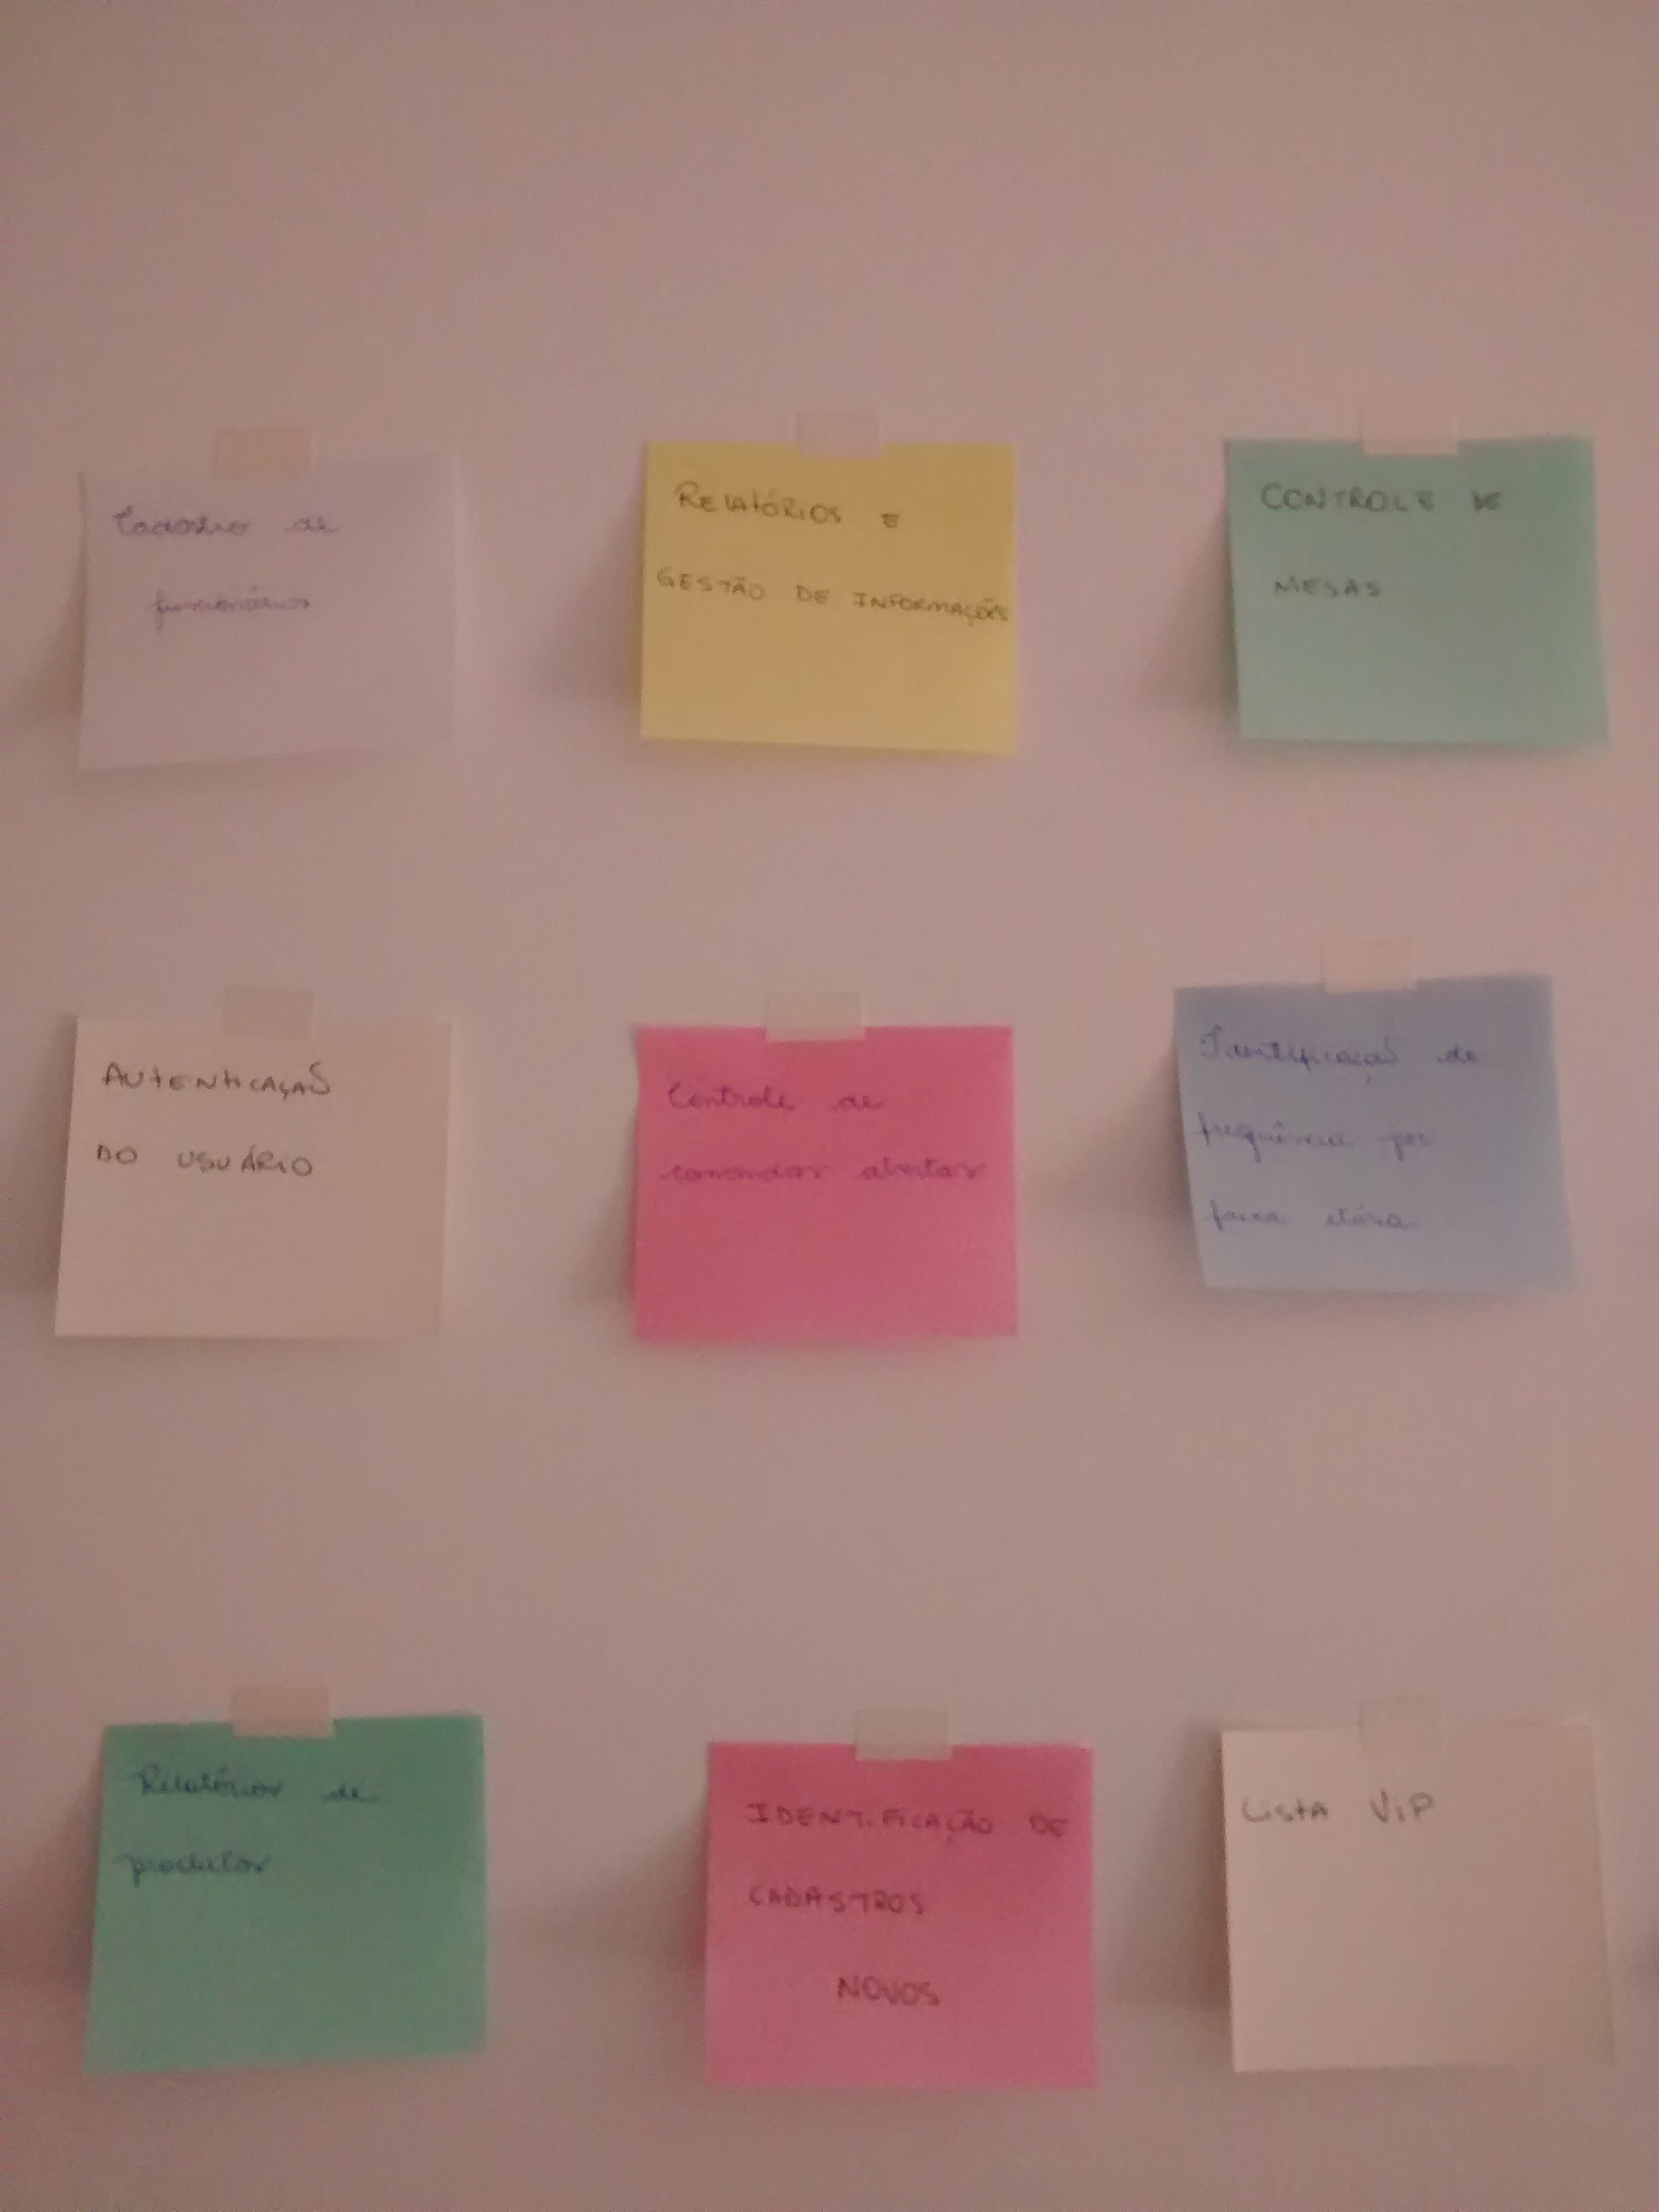 Cadastro de
funcionários
RELATÓRIOS E
GESTÃO DE INFORMAÇÕES
CONTROLE DE
MESAS
AUTENTICAÇÃO
DO USUÁRIO
Controle de
comandas abertas
Identificação de
frequência por
faixa etária
Relatórios de
produtos
IDENTIFICAÇÃO DE
CADASTROS
NOVOS
LISTA VIP